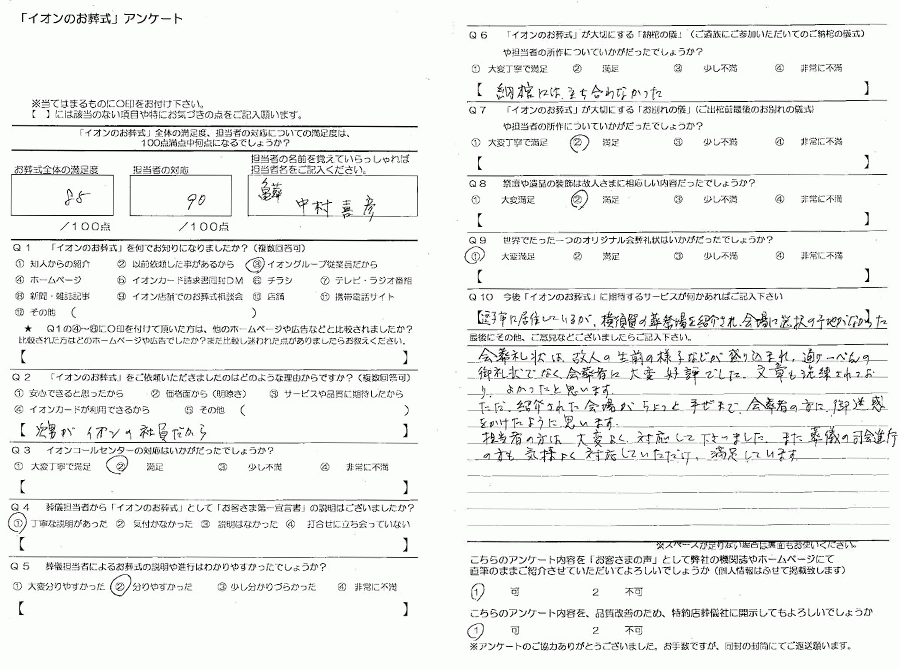 「イオンのお葬式」アンケート
※当てはまるものに○印をお付け下さい。
【　】には該当のない項目や特にお気づきの点をご記入願います。
「イオンのお葬式」全体の満足度、担当者の対応についての満足度は、
100点満点中何点になるでしょうか？
お葬式全体の満足度
担当者の対応
担当者の名前を覚えていらっしゃれば
担当者名をご記入ください。
85
90
中村喜彦
/100点
/100点
Q1　「イオンのお葬式」を何でお知りになりましたか？(複数回答可)
① 知人からの紹介　② 以前依頼した事があるから　③ イオングループ従業員だから
④ ホームページ　⑤ イオンカード請求書同封DM　⑥ チラシ　⑦ テレビ・ラジオ番組
⑧ 新聞・雑誌記事　⑨ イオン店舗でのお葬式相談会　⑩ 店舗　⑪ 携帯電話サイト
⑫ その他　(　　　)
★　Q1の④～⑧に○印を付けて頂いた方は、他のホームページや広告などと比較されましたか？
比較された方はどのホームページや広告でしたか？また比較し迷われた点がありましたらお教えください。
【　】
Q2　「イオンのお葬式」をご依頼いただきましたのはどのような理由からですか？(複数回答可)
① 安心できると思ったから　② 価格面から(明瞭さ)　③ サービスや品質に期待したから
④ イオンカードが利用できるから　⑤ その他　(　　　)
【次男がイオンの社員だから】
Q3　イオンコールセンターの対応はいかがだったでしょうか？
① 大変丁寧で満足　② 満足　③ 少し不満　④ 非常に不満
【　】
Q4　葬儀担当者から「イオンのお葬式」として「お客さま第一宣言書」の説明はございましたか？
① 丁寧な説明があった　② 気付かなかった　③ 説明はなかった　④ 打合せに立ち会っていない
【　】
Q5　葬儀担当者によるお葬式の説明や進行はわかりやすかったでしょうか？
① 大変分りやすかった　② 分りやすかった　③ 少し分かりづらかった　④ 非常に不満
【　】
Q6　「イオンのお葬式」が大切にする「納棺の儀」(ご遺族にご参加いただいてのご納棺の儀式)
や担当者の所作についていかがだったでしょうか？
① 大変丁寧で満足　② 満足　③ 少し不満　④ 非常に不満
【納棺には立ち合わなかった】
Q7　「イオンのお葬式」が大切にする「お別れの儀」(ご出棺前最後のお別れの儀式)
や担当者の所作についていかがだったでしょうか？
① 大変丁寧で満足　② 満足　③ 少し不満　④ 非常に不満
【　】
Q8　祭壇や遺品の装飾は故人さまに相応しい内容だったでしょうか？
① 大変満足　② 満足　③ 少し不満　④ 非常に不満
【　】
Q9　世界でたった一つのオリジナル会葬礼状はいかがだったでしょうか？
① 大変満足　② 満足　③ 少し不満　④ 非常に不満
【　】
Q10　今後「イオンのお葬式」に期待するサービスが何かあればご記入下さい
【逗子に居住しているが、横須賀の葬祭場を紹介され、会場に選択の予地がなかった】
最後にその他、ご意見などございましたらご記入下さい。
会葬礼状は、故人の生前の様子などが盛り込まれ、通り一ぺんの
御礼状でなく、会葬者に大変好評でした。文章も洗練されてお
り、よかったと思います。
ただ、紹介された会場がちょっと手ぜまで、会葬者の方に御迷惑
をかけたように思います。
担当者の方は大変よく対応して下さいました。また葬儀の司会進行
の方も気持よく対応していただけ、満足しています
※スペースが足りない場合は裏面もお使いください。
こちらのアンケート内容を「お客さまの声」として弊社の機関誌やホームページにて
直筆のままご紹介させていただいてよろしいでしょうか(個人情報はふせて掲載致します)
1　可　2　不可
こちらのアンケート内容を、品質改善のため、特約店葬儀社に開示してもよろしいでしょうか
1　可　2　不可
※アンケートのご協力ありがとうございました。お手数ですが、同封の封筒にてご返送願います。